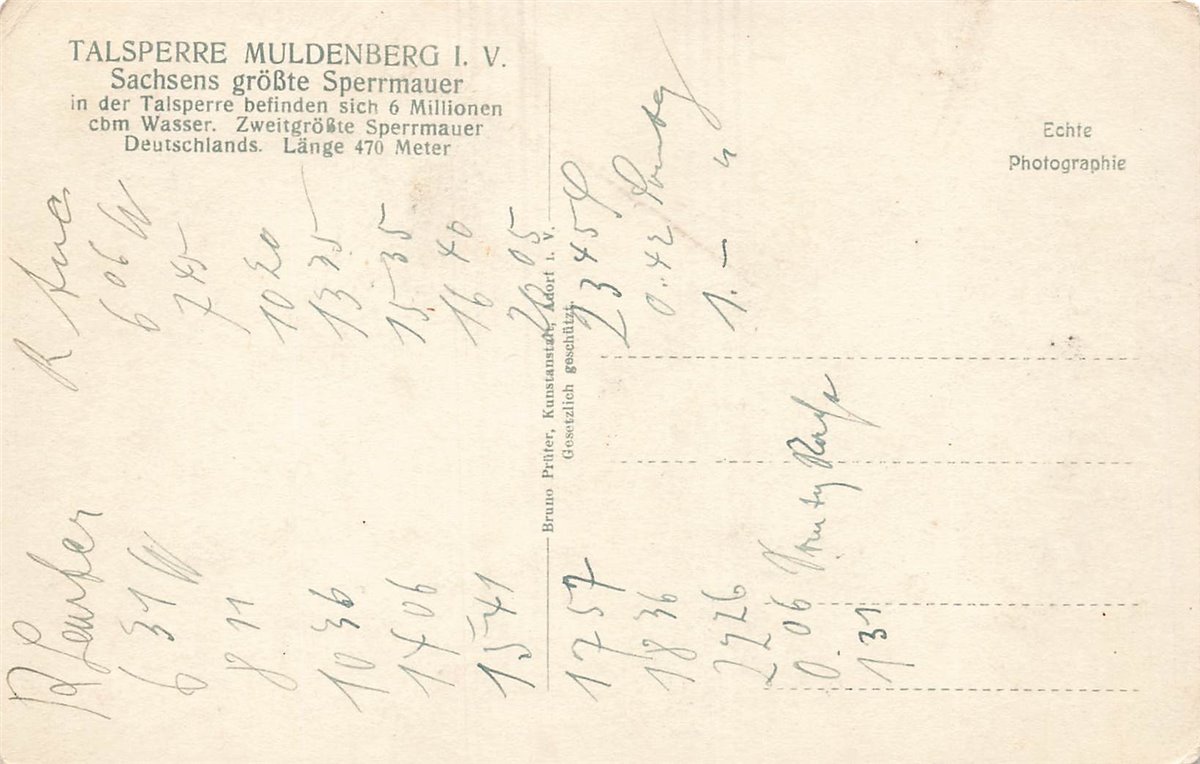 TALSPERRE MULDENBERG I. V.
Sachsens größte Sperrmauer
in der Talsperre befinden sich 6 Millionen
cbm Wasser. Zweitgrößte Sperrmauer
Deutschlands. Länge 470 Meter
Echte
Photographie
Bruno Prüfer, Kunstanstalt, Adorf i. V.
Gesetzlich geschützt.
R Aue
6 06 W
7 45
10 20
13 25
15 35
16 40
20 05
23 45 S
0.42 Sonntag
1.– "
6 31 W
8 11
10 36
14 06
15 41
17 57
18 36
22 26
0 06
1 31